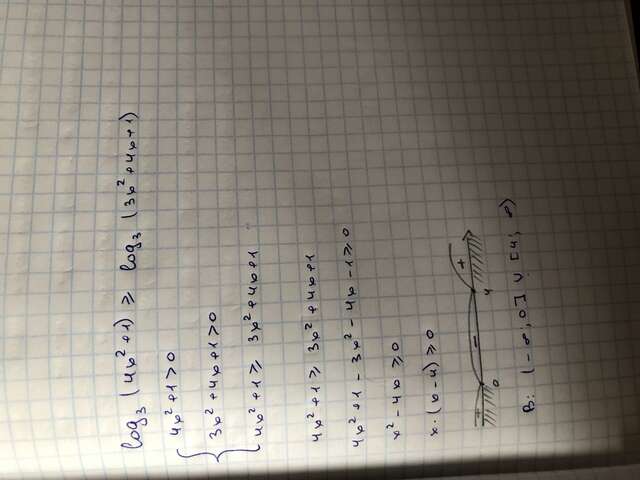 log₃ (4x² + 1) ≥ log₃ (3x² + 4x + 1)
4x² + 1 > 0
3x² + 4x + 1 > 0
4x² + 1 ≥ 3x² + 4x + 1
4x² + 1 ≥ 3x² + 4x + 1
4x² + 1 - 3x² - 4x - 1 ≥ 0
x² - 4x ≥ 0
x · (x - 4) ≥ 0
+ - +
0 4
В: (-∞; 0] ∪ [4; ∞)